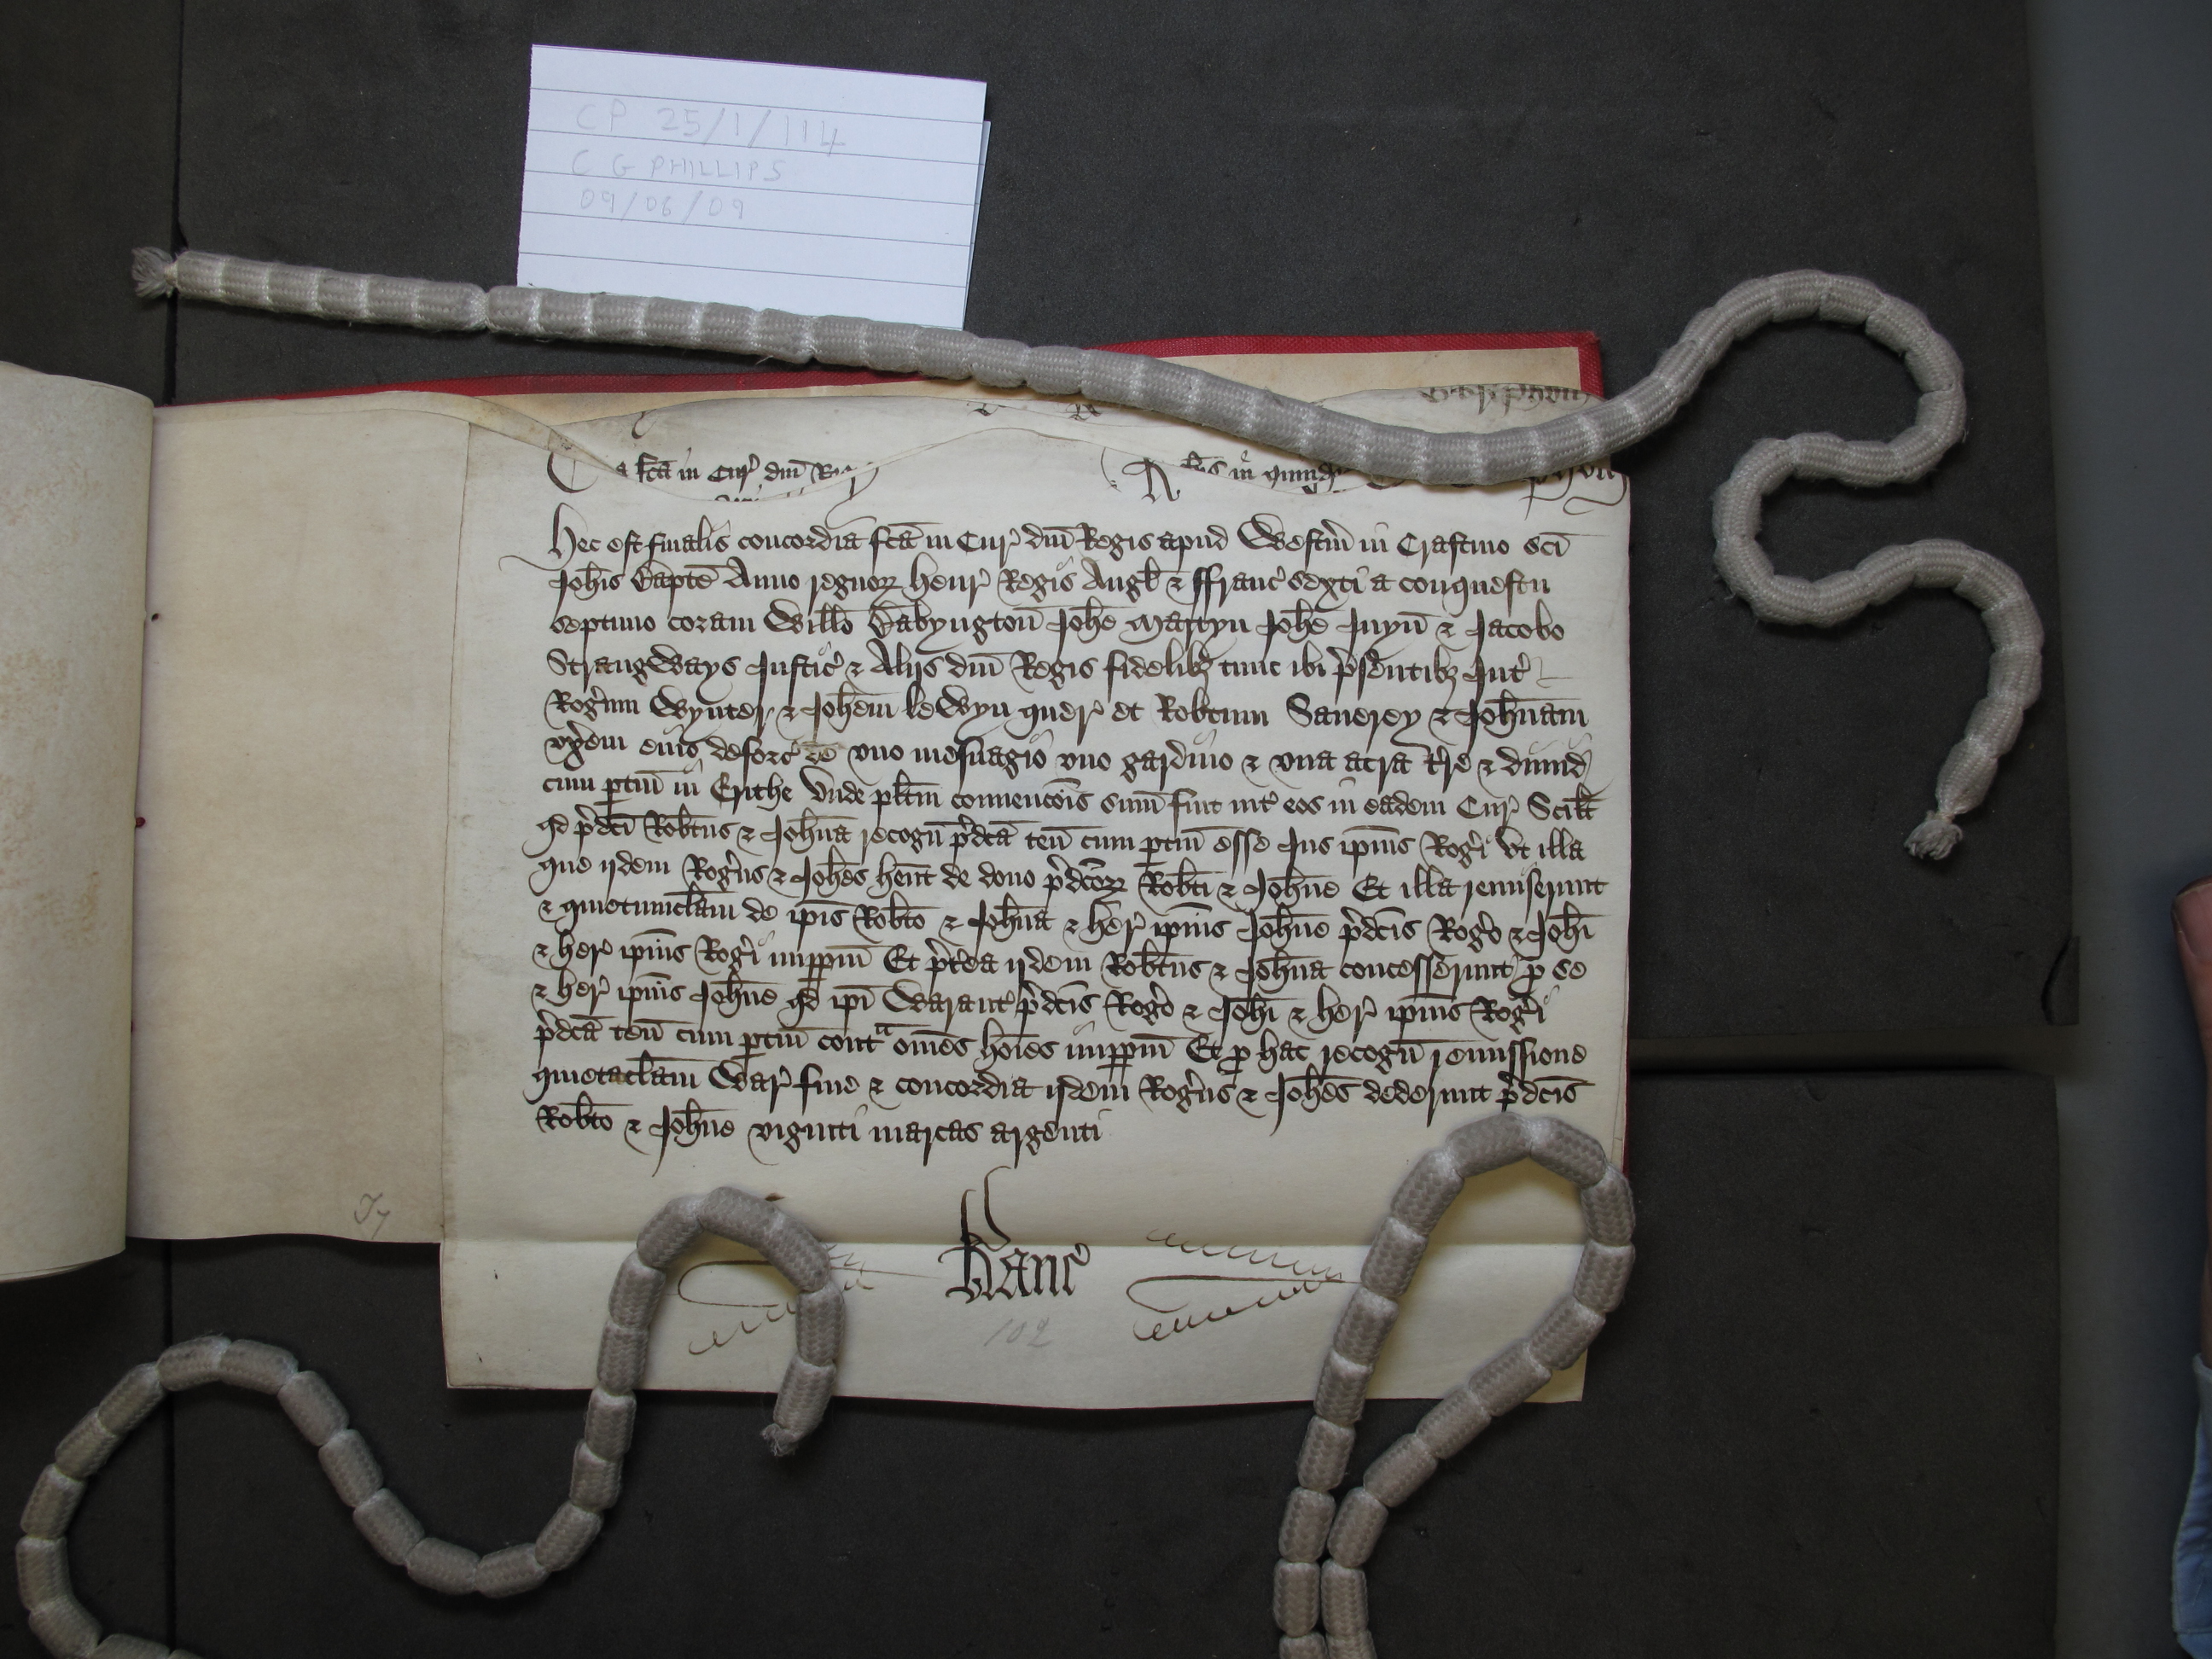 CP 25/1/114
C G PHILLIPS
09/06/09
fc̄a in Cur̛ dn̄i
in quind
Hec est finalis concordia fc̄a in Cur̛ dn̄i Regis apud Westm̄ in Crastino Sc̄i
Joh̄is Bapt̄e Anno regnoꝝ Henr̛ Regis Angl̄ & ffranc̛ sexti a conquestu
septimo coram Will̄o Babyngton̄ Joh̄e Martyn Joh̄e Juyn̄ & Jacobo
Strangways Justic̛ & Alijs dn̄i Regis fidelibꝫ tunc ibi p̛sentibꝫ Int̛
Rog̛um Wynter & Joh̄em lewyn quer̛ et Rob̄tum Sauerey & Joh̄nam
vx̛em eius deforc̛ de vno mesuagio vno gardino & vna acra t̛re & dimid̛
cum ꝑtin̄ in Erithe Vnde pl̄itm conuenc̄ois sum̄ fuit int̛ eos in eadem Cur̛ Scil̄t
qd̄ p̛dc̄i Rob̄tus & Joh̄na recogn̄ p̛dc̄a ten̄ cum ꝑtin̄ esse Jus ip̄ius Rog̛i Vt illa
que ijdem Rog̛us & Joh̄es h̄ent de dono p̛dc̄oꝝ Rob̄ti & Joh̄ne Et illa remiserunt
& quietumcl̄am de ip̄is Rob̄to & Joh̄na & her̛ ip̄ius Joh̄ne p̛dc̄is Rog̛o & Joh̄i
& her̛ ip̄ius Rog̛i imꝑꝑm̄ Et p̛t̛ea ijdem Rob̄tus & Joh̄na concesserunt ꝓ se
& her̛ ip̄ius Joh̄ne qd̄ ip̄i Warant̛ p̛dc̄is Rog̛o & Joh̄i & her̛ ip̄ius Rog̛i
p̛dc̄a ten̄ cum ꝑtin̄ contᵃ om̄es ho̅ies imꝑꝑm̄ Et ꝓ hac recogn̄ remissione
quietacl̄am War̛ fine & concordia ijdem Rog̛us & Joh̄es dederunt p̛dc̄is
Rob̄to & Joh̄ne viginti marcas argenti
Kanc̛
102